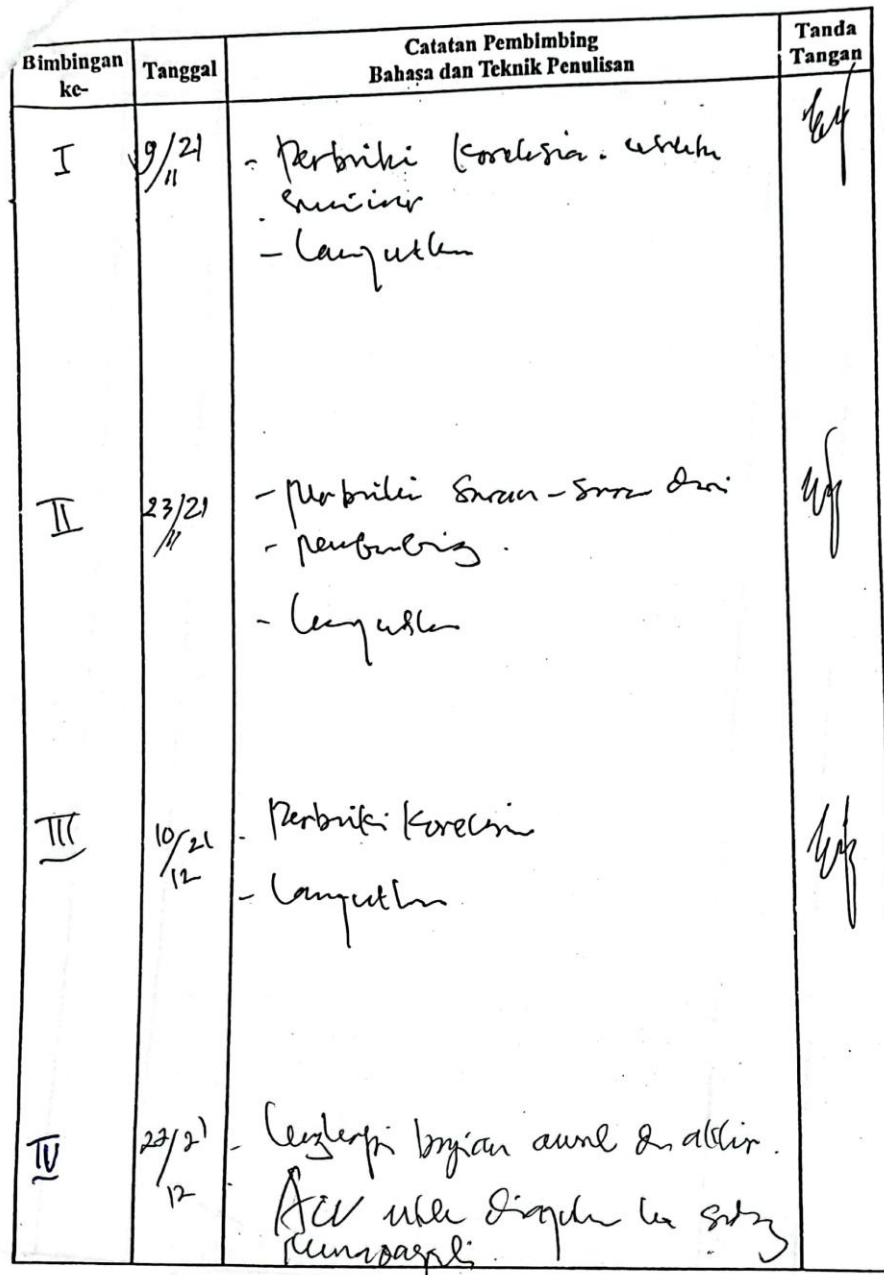 Bimbingan ke-
Tanggal
Catatan Pembimbing
Bahasa dan Teknik Penulisan
Tanda Tangan
I
9/21
11
- Perbaiki
- Lanjutkan
II
23/21
11
- perbaiki saran-saran dari
- pembimbing.
- Lanjutkan
III
10/21
12
- Perbaiki
- Lanjutkan
IV
12
- Lengkapi bagian awal dan akhir.
ACC untuk diajukan ke sidang